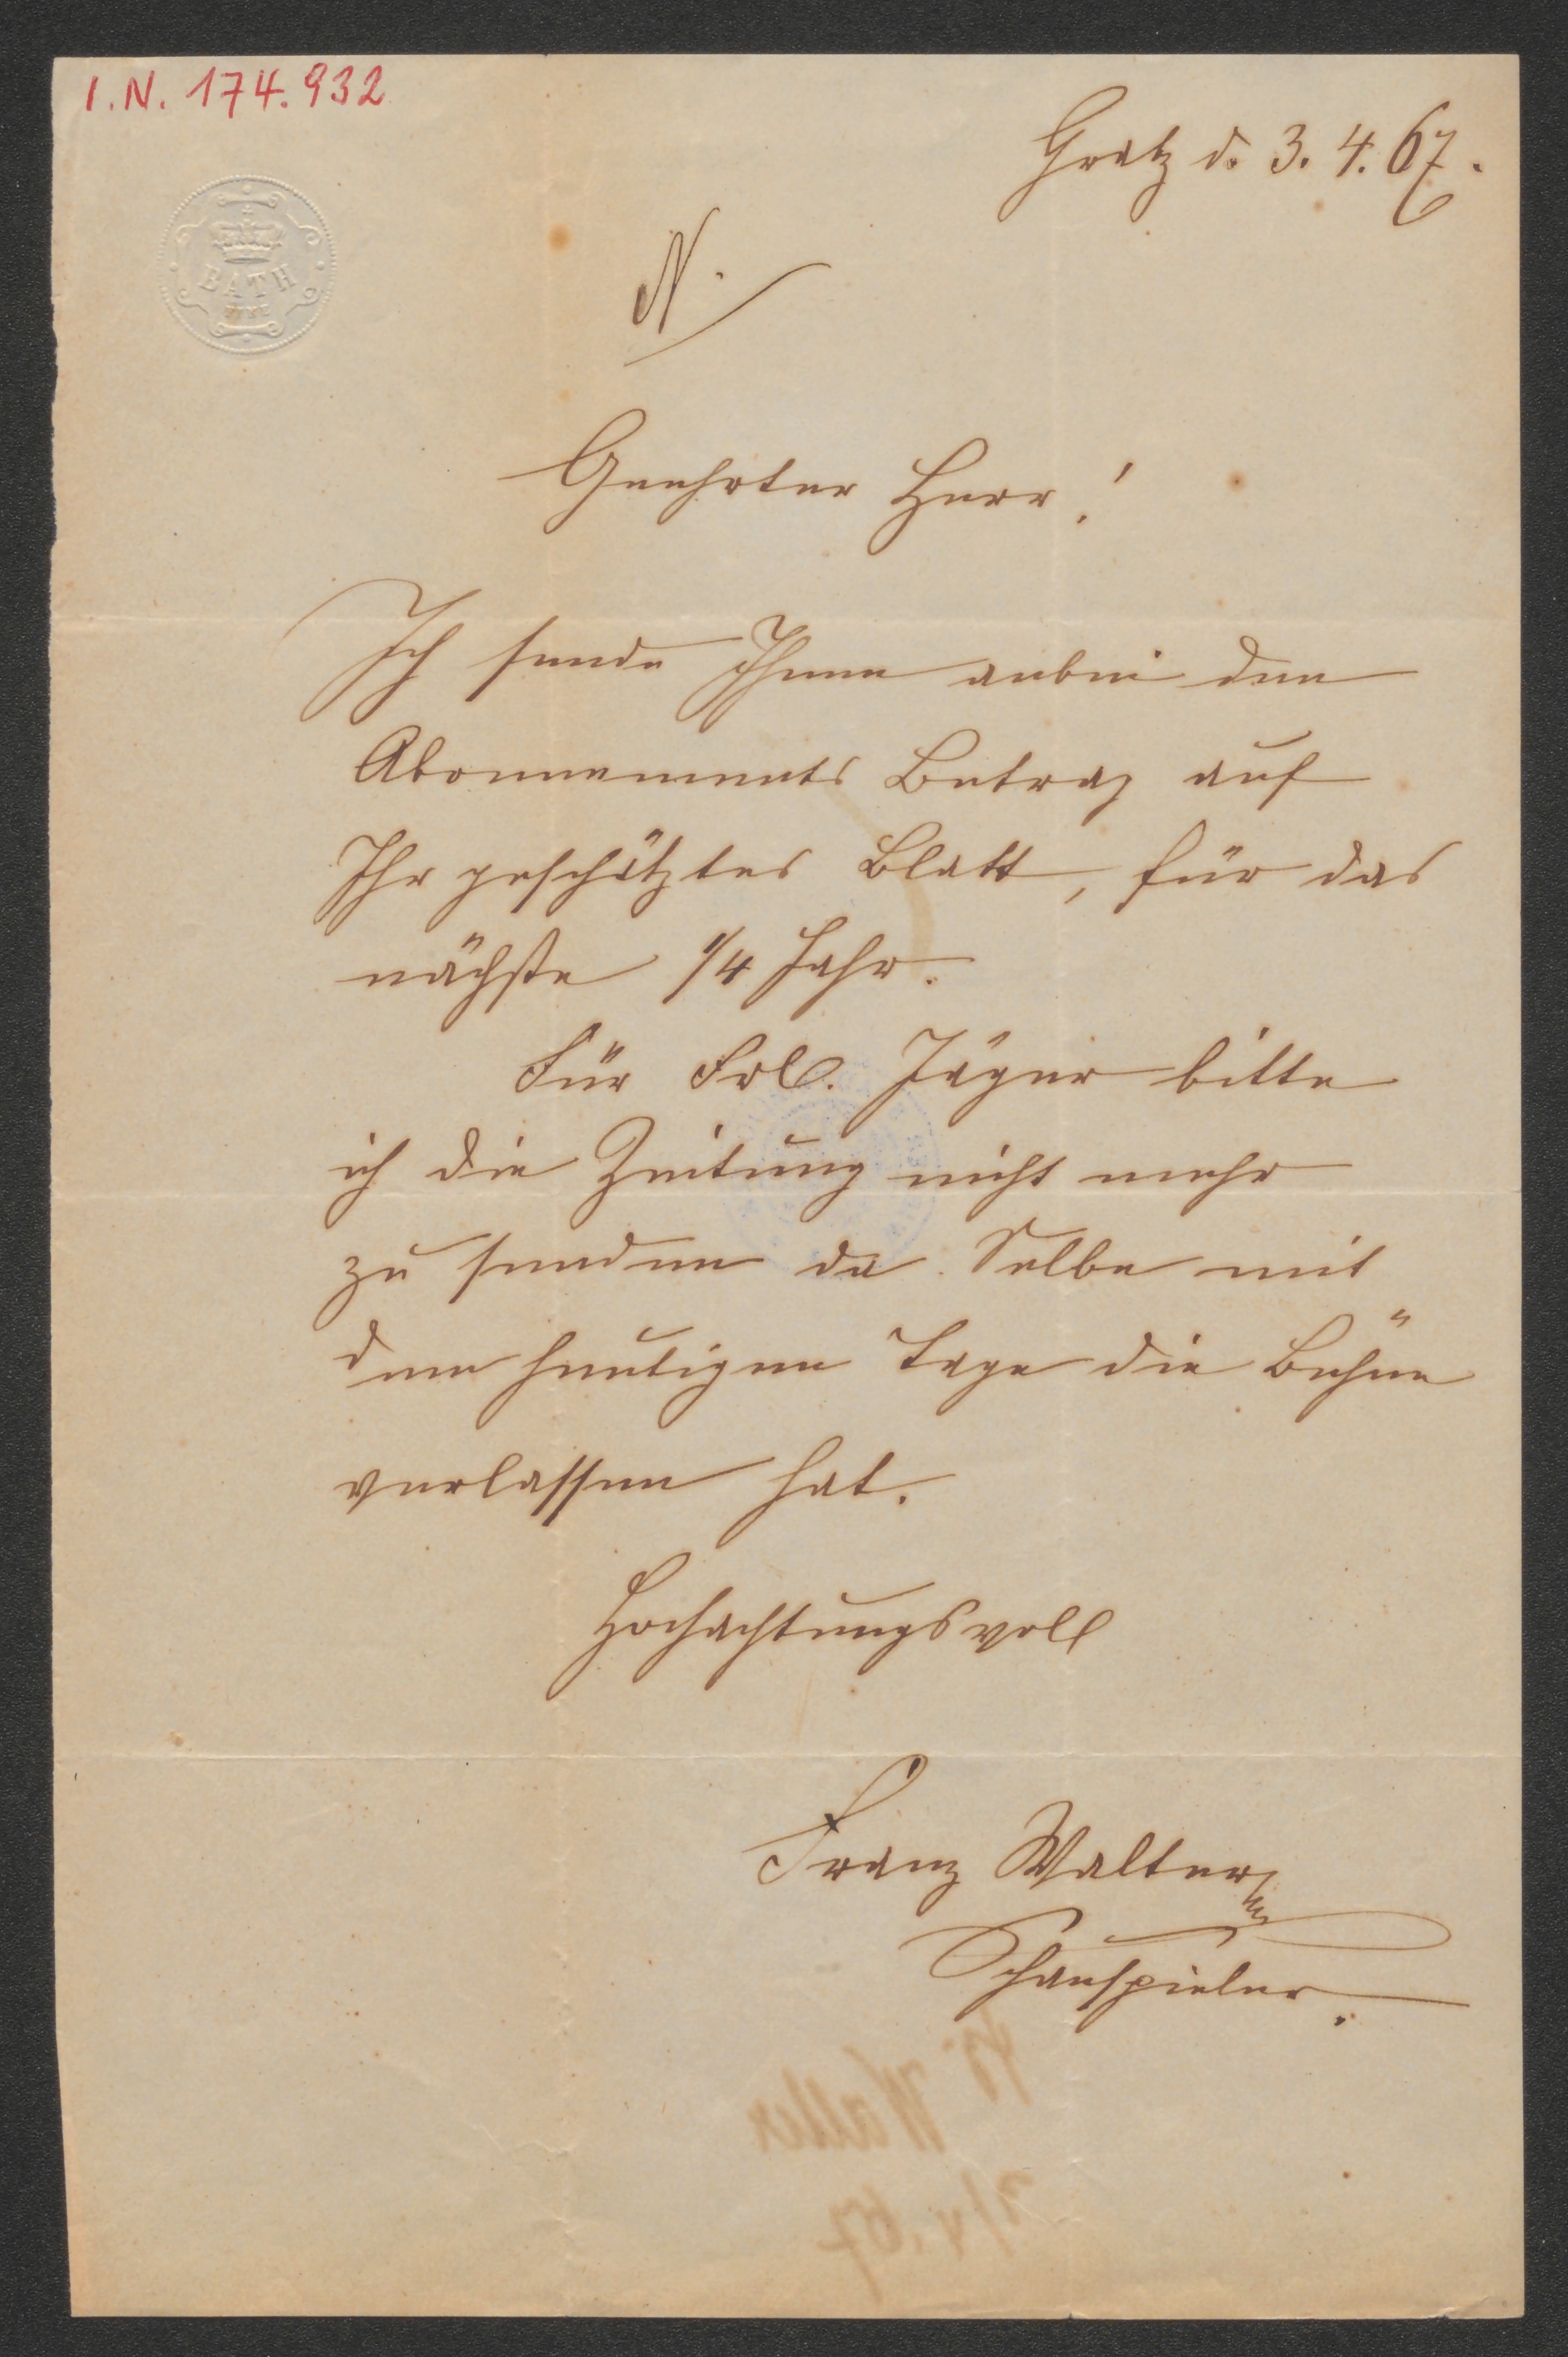 I.N. 174.932
Gratz d. 3. 4. 67.
BATH
N.
Geehrter Herr!
Ich sende Ihnen anbei den
Abonnements Betrag auf
Ihr geschätztes Blatt, für das
nächste 1/4 Jahr.
Für Frl. Jäger bitte
ich die Zeitung nicht mehr
zu senden da Selbe mit
dem heutigen Tage die Bühne
verlassen hat.
Hochachtungsvoll
Franz Walter
Schauspieler.